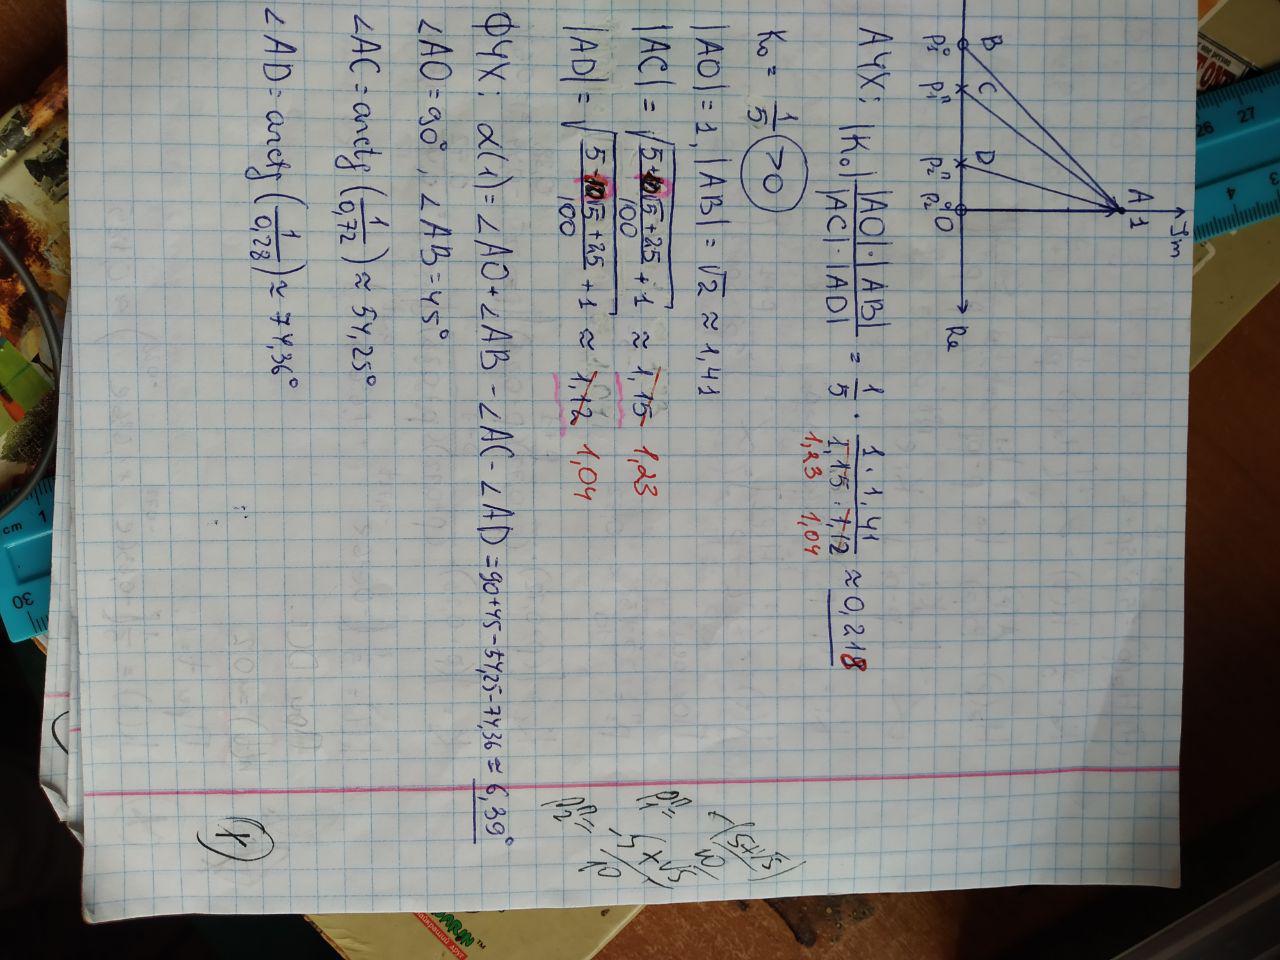 Im
A 1
B C D
P₁⁰ P₁ⁿ P₂ⁿ P₂⁰ O Re
АЧХ: |K₀| |AO|·|AB| / |AC|·|AD| = 1/5 · 1·1,41 / 1,15·1,12 ≈ 0,218
1,23 1,04
K₀ = 1/5 >0
|AO| = 1, |AB| = √2 ≈ 1,41
|AC| = √((5+10√5+25)/100 + 1) ≈ 1,15 1,23
|AD| = √((5-10√5+25)/100 + 1) ≈ 1,12 1,04
P₁ⁿ = -(5+√5)/10
P₂ⁿ = (-5+√5)/10
ФЧХ: α(1) = ∠AO + ∠AB - ∠AC - ∠AD = 90+45-54,25-74,36 ≈ 6,39°
∠AO = 90°, ∠AB = 45°
∠AC = arctg (1/0,72) ≈ 54,25°
∠AD = arctg (1/0,28) ≈ 74,36°